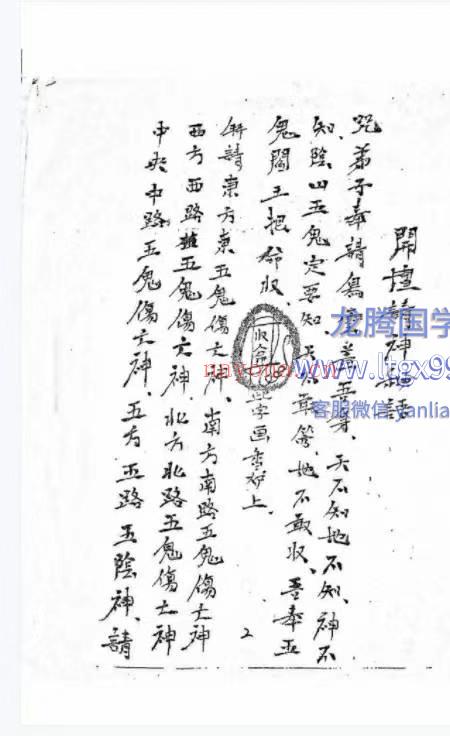 開壇請神咒語
咒弟子奉請烏 蓋吾身、天不知地不知、神不
知、陰山五鬼定要知、天不 管、地不敢收、吾奉五
鬼閻王把命收、
 字画 炉上
 請東方東 五鬼傷亡神、南方南路五鬼傷亡神
西方西路 五鬼傷亡神、北方北路五鬼傷亡神
中央中路五鬼傷亡神、五方五路五陰神、請
2
龙腾国学
www.ltgx99
客服微信yanlia